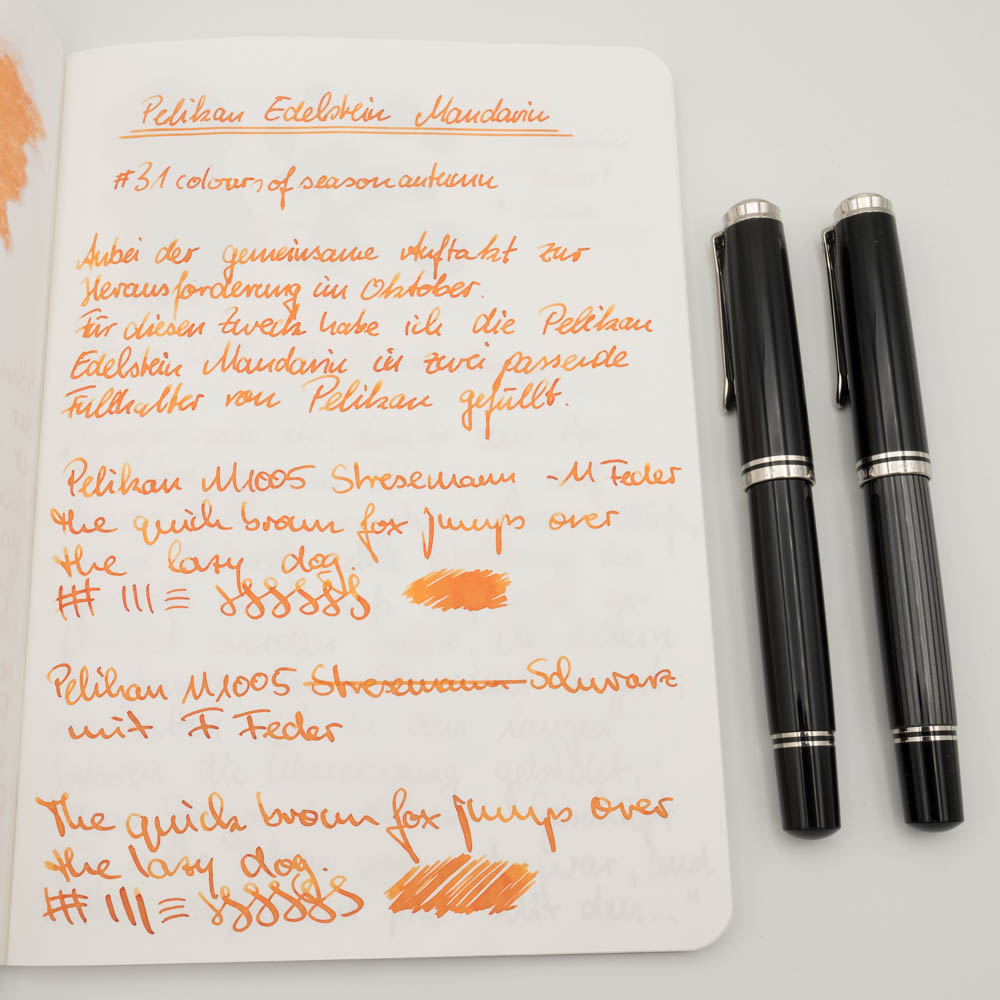 Pelikan Edelstein Mandarin
#31coloursofseasonautumn
Anbei der gemeinsame Auftakt zur
Herausforderung im Oktober.
Für diesen Zweck habe ich die Pelikan
Edelstein Mandarin in zwei passende
Füllhalter von Pelikan gefüllt.
Pelikan M1005 Stresemann - M Feder
the quick brown fox jumps over
the lazy dog.
Pelikan M1005 Stresemann Schwarz
mit F Feder
The quick brown fox jumps over
the lazy dog.